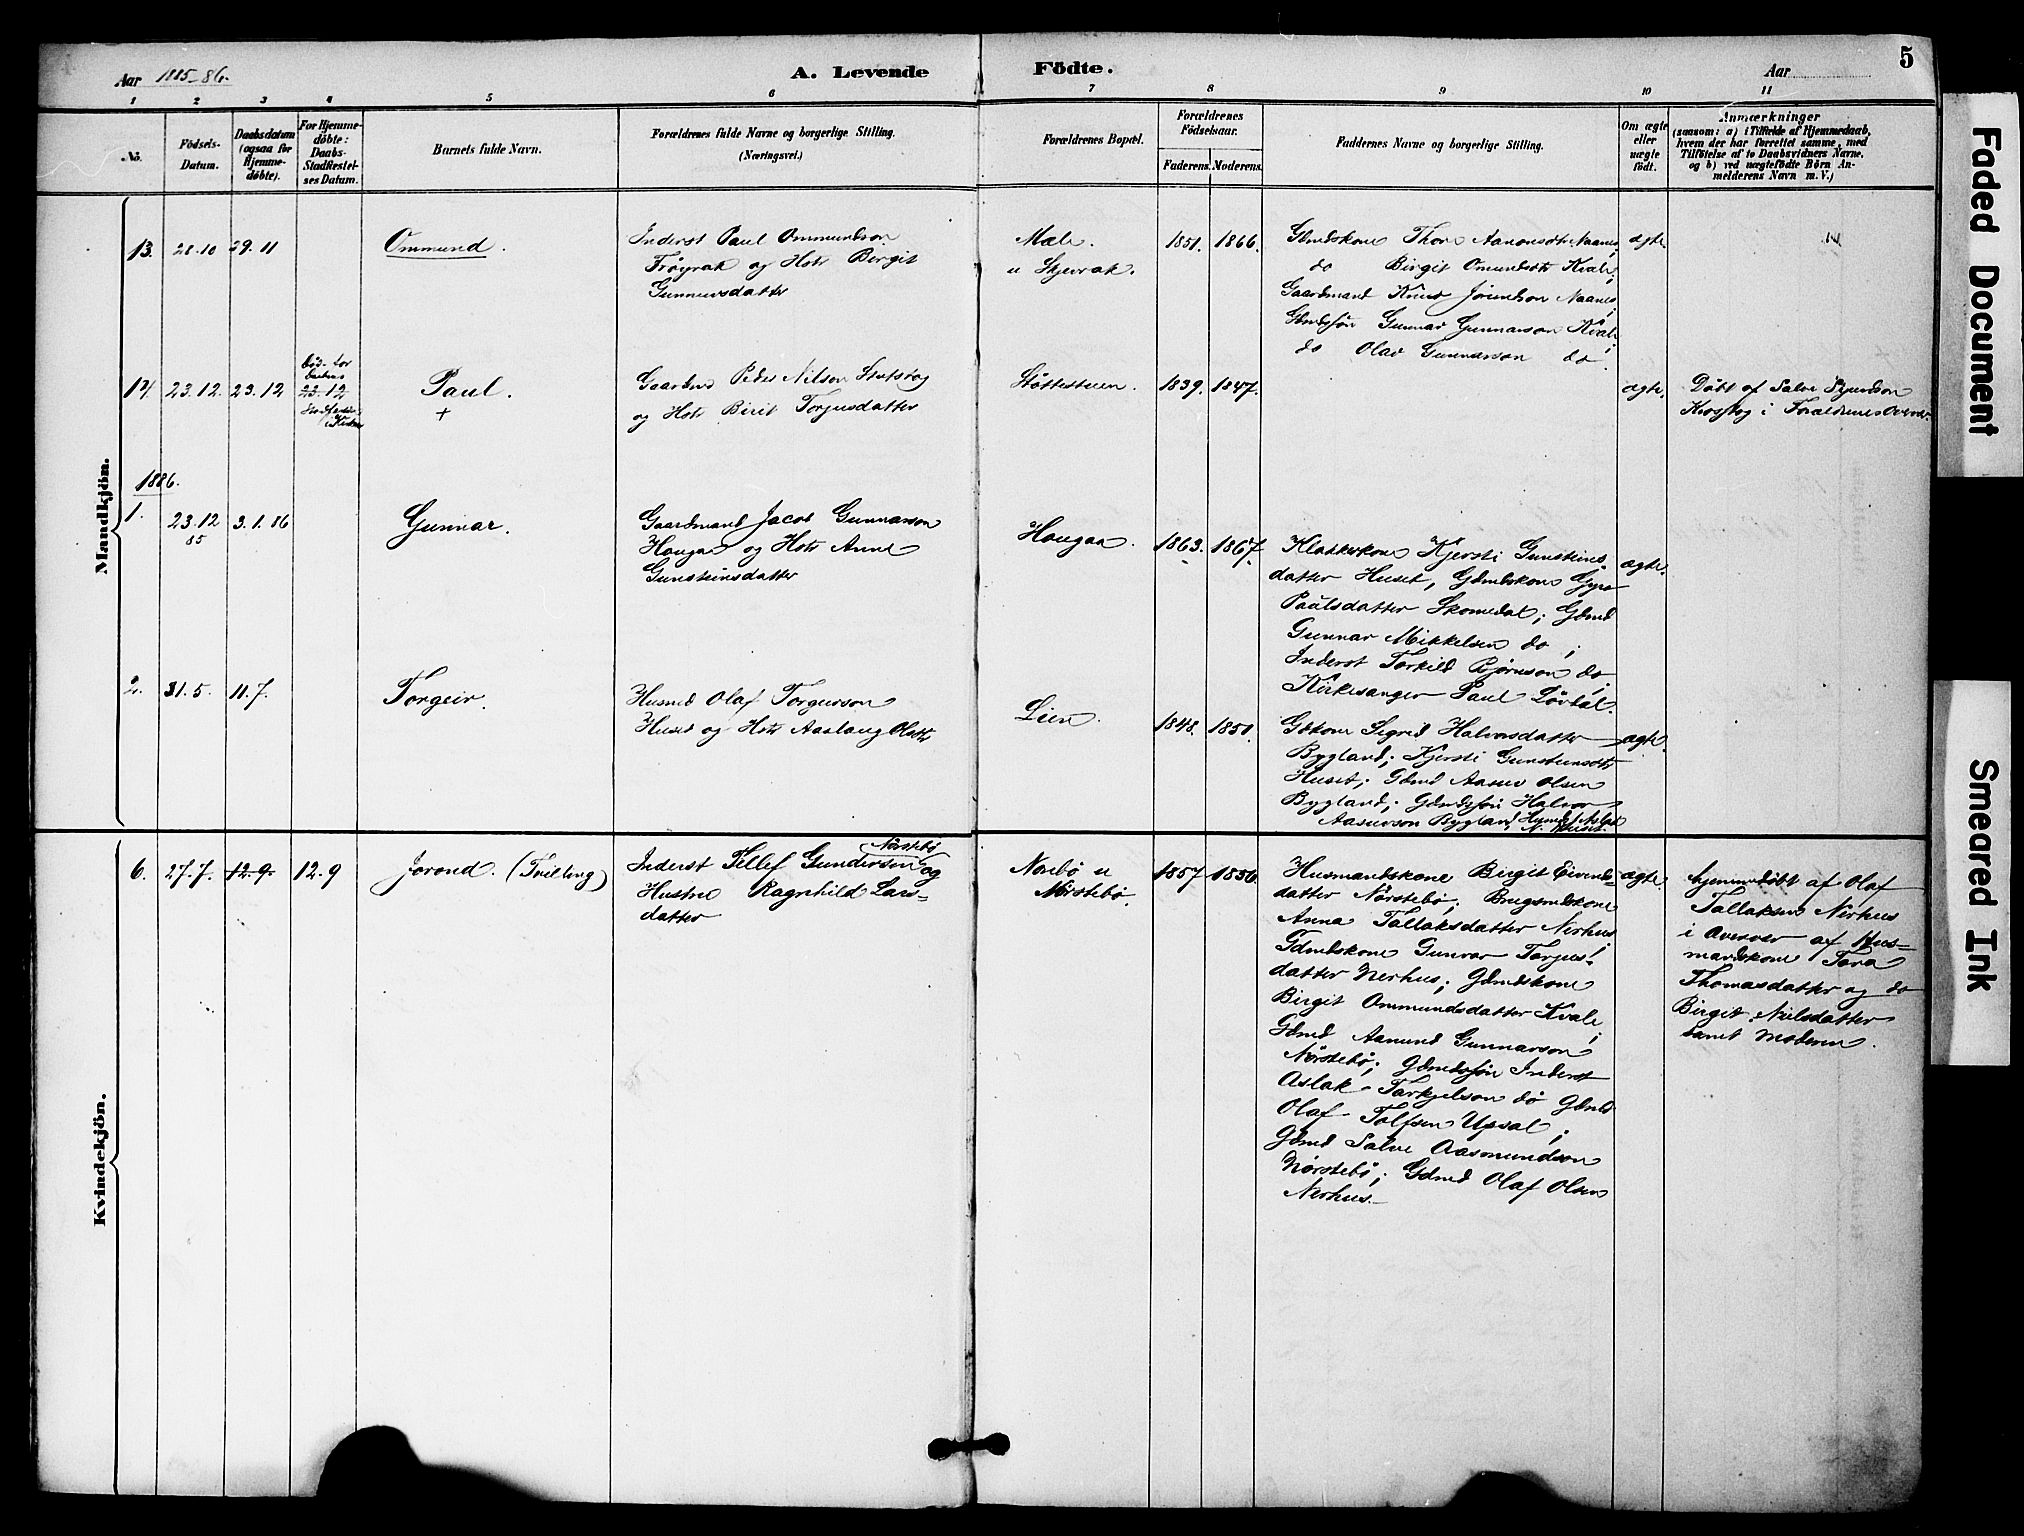 Aar 1885-86.
A. Levende Födte.
Aar
5
1 2 3 4 5 6 7 8 9 10 11
No.
Födsels-
Datum.
Daabsdatum
(ogsaa for
Hjemme-
döbte).
For Hjemme-
döbte:
Daabs-
Stadfæstel-
ses Datum.
Barnets fulde Navn.
Forældrenes fulde Navne og borgerlige Stilling.
(Næringsvei.)
Forældrenes Bopæl.
Forældrenes
Födselsaar.
Faderens. Moderens.
Faddernes Navne og borgerlige Stilling.
Om ægte
eller
uægte
födt.
Anmærkninger
(saasom: a) i Tilfælde af Hjemmedaab,
hvem der har forrettet samme, med
Tilföielse af to Daabsvidners Navne,
og b) ved uægtefödte Börn An-
melderens Navn m. V.)
Mandkjön.
13. 28.10 29.11
Ommund.
Inderst Paul Ommundson
Frøyrak og Hstr Birgit
Gunnersdatter
Mæle.
u Skjevrak.
1851. 1866.
Gdmdskone Thore Aanonsdtr Naanes;
do Birgit Omundsdtr Kvale;
Gaardmand Knud Jørundson Naanes
Gdmdssøn Gunnar Gunnarson Kvale;
do Olav Gunnarson do.
ægte
14. 23.12. 23.12
23.12
Paul.
+
Gaardmd Peder Nilson
og Hstr Birit Torjusdatter
Støttestuen.
1839. 1847.
ægte.
Døbt af Salve Sjurdson
i Forældrenes Overvær.
1886.
1. 23.12 3.1.86
85
Gunnar.
Gaardmand Jacob Gunnarson
Haugaa og Hstr Anne
Gunsteinsdatter
Haugaa.
1863. 1867.
Klokkerkone Kjersti Gunsteins-
datter Huset, Gdmdskone Gyro
Paulsdatter Skomedal; Gdmd
Gunnar Mikkelsen do;
Inderst Torkild Bjørnson do;
Kirkesanger Paul Løvdal.
ægte.
2. 31.5. 11.7.
Torgeir.
Husmd Olaf Torgerson
Huset og Hstr Aaslaug Olsdtr
Lien.
1848. 1850.
Gdkone Sigrid Halvorsdatter
Bygland; Kjersti Gunsteinsdtr
Huset; Gdmd Aasuv Olsen
Bygland; Gdmdssøn Halvor
Aasuvson Bygland; Husmd
Huset.
ægte.
Kvindekjön.
6. 27.7. 12.9. 12.9
Jorond. (Tvilling)
Nørstebø
Inderst Tellef Gundersen og
Hustru Ragnhild Lars-
datter
Norbø u
Nørstebø.
1857. 1856.
Husmandskone Birgit Eivends-
datter Nørstebø; Brugsmdskone
Anna Tallaksdatter Nerhus;
Gdmdskone Gunvor Torjus-
datter Nerhus; Gdmdskone
Birgit Ommundsdatter Kvale;
Gdmd Aamund Gunnarson
Nørstebø; Gdmdssøn Inderst
Aslak Tarkjelson do Gdmd
Olaf Tolfsen Upsal;
Gdmd Salve Aasmundson
Nørstebø; Gdmd Olaf Olsen
Nerhus.
ægte.
hjemmedøbt af Olaf
Tallaksen Nerhus
i Overvær af Hus-
mandskone Tora
Thomasdatter og do
Birgit Nielsdatter
samt Moderen.
Faded Document
Smeared Ink